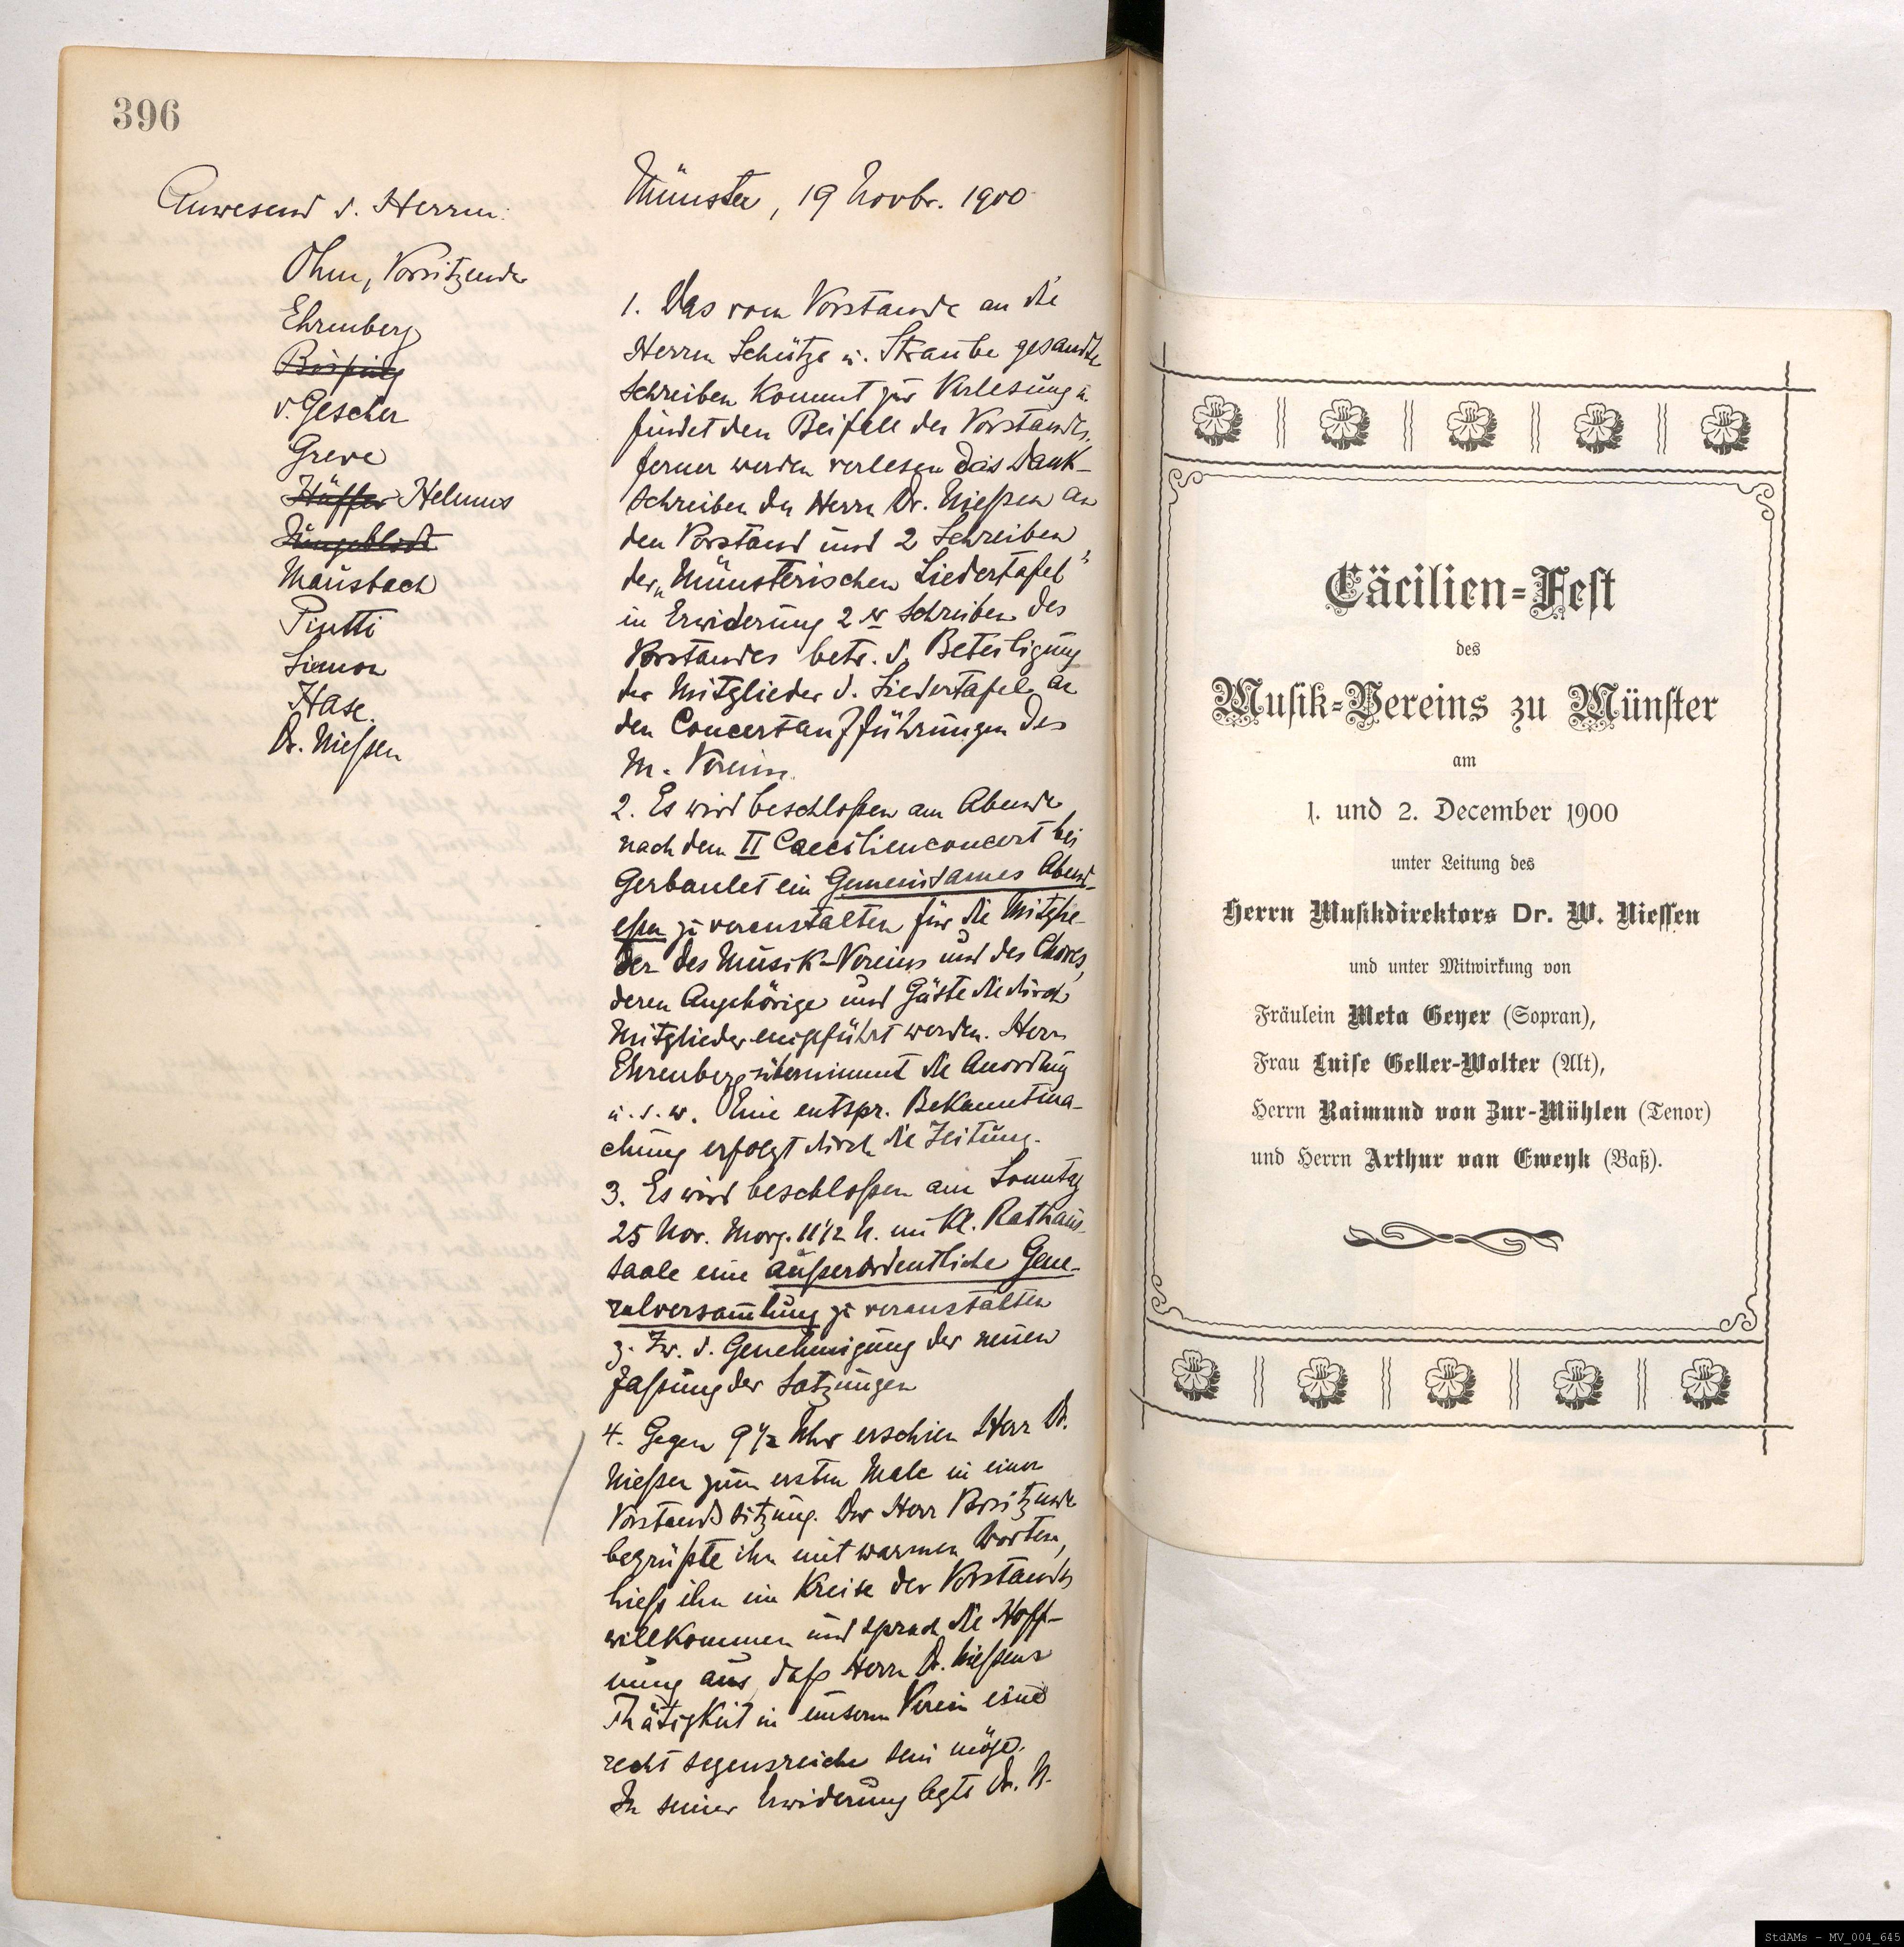 396
Anwesend d. Herren:
Ohm, Vorsitzender
Ehrenberg
Bispinck
v. Gescher
Greve
Hüffer Helmus
Jungeblodt
Mausbach
Piutti
Simon
Hase.
Dr. Nießen
Münster, 19 Novbr. 1900
1. Das vom Vorstande an die
Herren Schütze u. Straube gesandte
Schreiben kommt zur Verlesung u.
findet den Beifall des Vorstandes,
ferner werden verlesen das Dank-
schreiben des Herrn Dr. Nießen an
den Vorstand und 2 Schreiben
der „Münsterischen Liedertafel"
in Erwiderung 2er Schreiben des
Vorstandes betr. d. Beteiligung
der Mitglieder d. Liedertafel an
den Concertaufführungen des
M. Vereins.
2. Es wird beschloßen am Abende
nach dem II Caecilienconcert bei
Gerbaulet ein Gemeinsames Abend-
eßen zu veranstalten für die Mitglie-
der des Musik-Vereins und des Chores,
deren Angehörige und Gäste die durch
Mitglieder eingeführt werden. Herr
Ehrenberg übernimmt die Anordnung
u. s. w. Eine entspr. Bekanntma-
chung erfolgt durch die Zeitung.
3. Es wird beschloßen am Sonntag
25 Nov. Morg. 11 1/2 U. im kl. Rathaus-
saale eine außerordentliche Gene-
ralversammlung zu veranstalten
z. Zw. d. Genehmigung der neuen
Faßung der Satzungen
4. Gegen 9 1/2 Uhr erschien Herr Dr.
Nießen zum ersten Male in einer
Vorstandssitzung. Der Herr Vorsitzende
begrüßte ihn mit warmen Worten,
hieß ihn im Kreise des Vorstandes
willkommen und sprach die Hoff-
nung aus, daß Herrn Dr. Nießens
Thätigkeit in unserm Verein eine
recht segensreiche sein möge.
In seiner Erwiderung legte Dr. N.
Cäcilien-Fest
des
Musik-Vereins zu Münster
am
1. und 2. December 1900
unter Leitung des
Herrn Musikdirektors Dr. W. Niessen
und unter Mitwirkung von
Fräulein Meta Geyer (Sopran),
Frau Luise Geller-Wolter (Alt),
Herrn Raimund von Zur-Mühlen (Tenor)
und Herrn Arthur van Eweyk (Baß).
StdAMs - MV_004_645